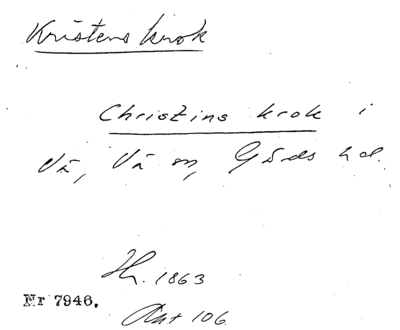 Kristens krok
Christins krok i
Vä, Vä sn, Gärds hd.
Hr. 1863
Nr 7946.
Ant 106